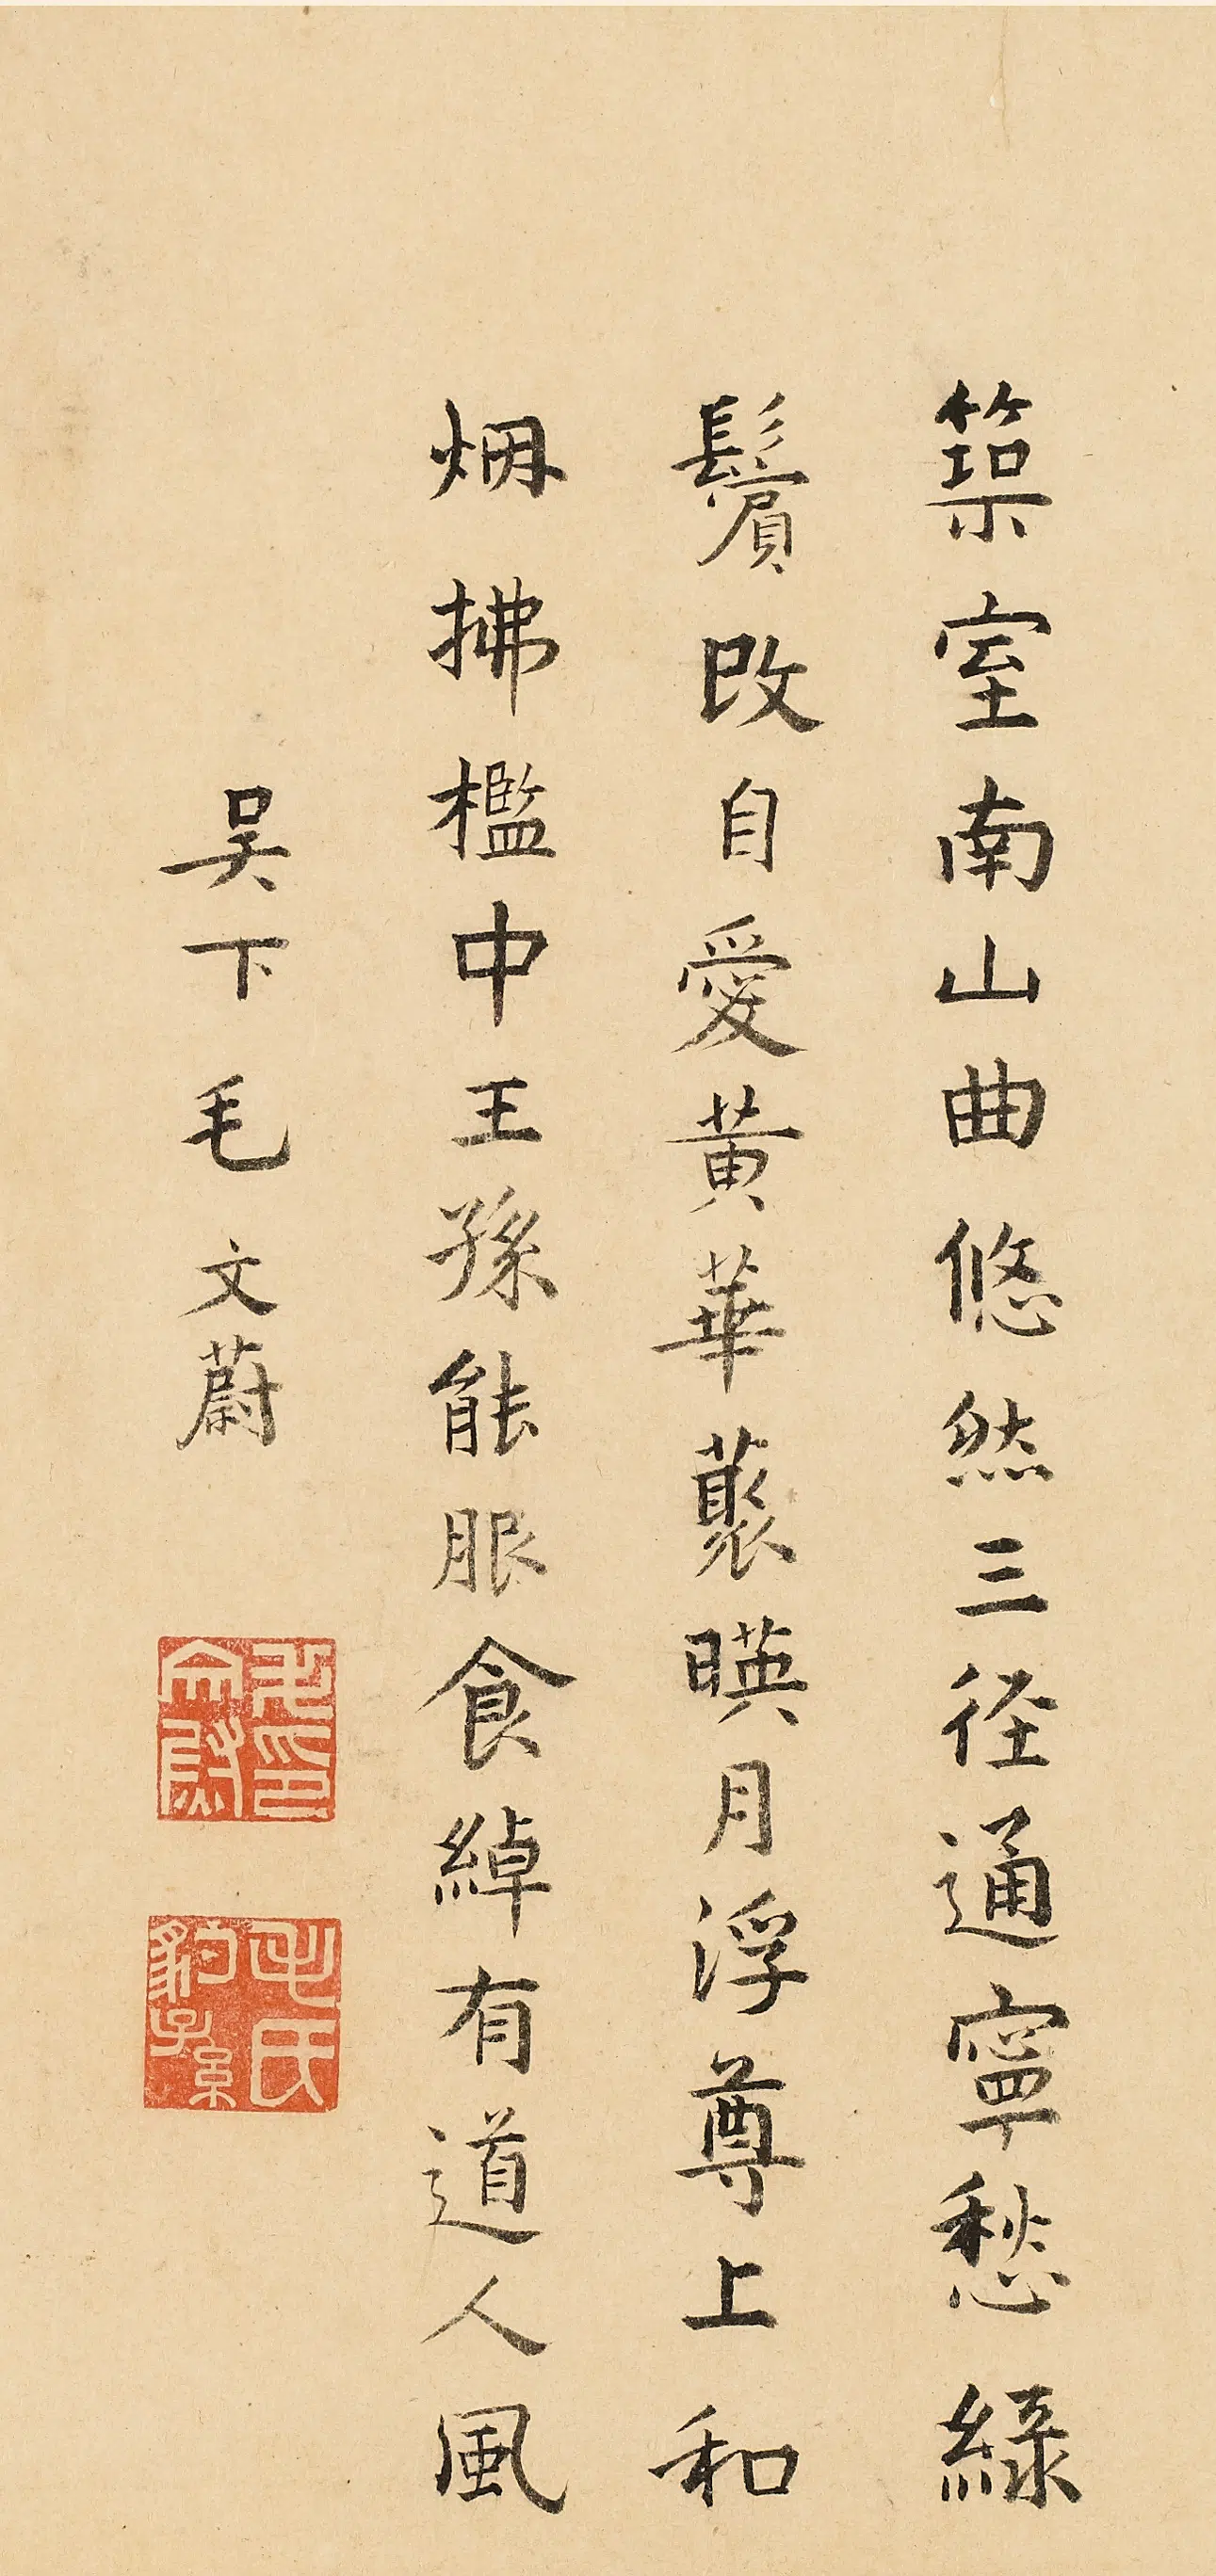 築室南山曲悠然三径通寧愁綠
鬢改自愛黄華叢暎月浮尊上和
烟拂檻中王孫能服食綽有道人風
吴下毛文蔚
毛印文蔚
毛氏豹孫